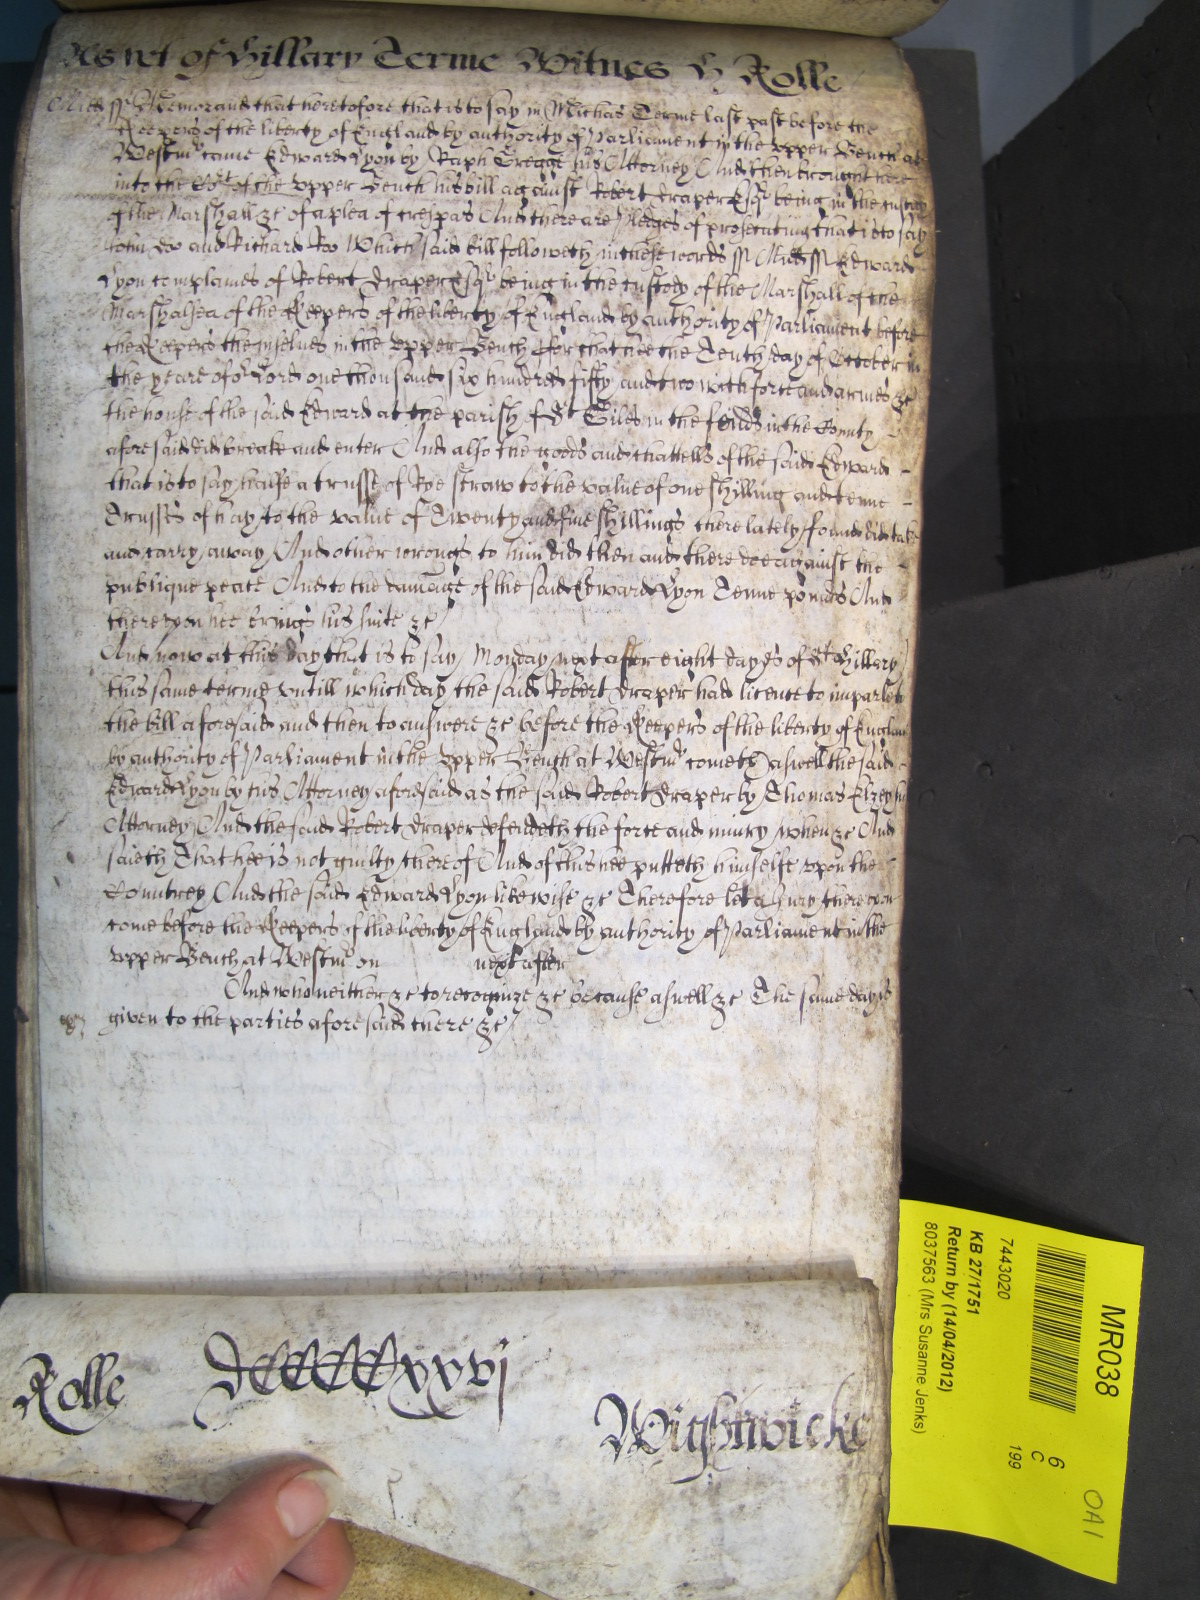 As yet of Hillary Terme Witnes H Rolle
Midds ss Memorand that heretofore that is to say in Michas Terme last past before the
Keepers of the liberty of England by authority of Parliament in the upper Bench at
Westmr came Edward Lyon by Raph Gregge his Attorney And then brought here
into the Cort of the upper Bench his bill against Robert Draper Esqr being in the custody
of the Marshall &c of a plea of trespas And there are pledges of prosecuting that is to say
John Do and Richard Ro Which said bill followeth in these words ss Midds ss Edward
Lyon complaines of Robert Draper Esqr being in the custody of the Marshall of the
Marshalsea of the Keepers of the liberty of England by authority of Parliament before
the Keepers themselves in the upper Bench ffor that hee the Tenth day of October in
the yeare of or Lord one thousand six hundred fifty and two with force and armes &c
the house of the said Edward at the parish of St Giles in the feilds in the County
aforesaid did breake and enter And also the goods and chattells of the said Edward
that is to say halfe a trusse of Rye straw to the value of one shilling and tenne
Trusses of hay to the value of Twenty and five shillings there lately found did take
and carry away And other wrongs to him did then and there doe against the
publique peace And to the damage of the said Edward Lyon Tenne pounds And
thereupon hee brings his suite &c
And now at this day that is to say Monday next after eight dayes of St Hillary
this same terme untill which day the said Robert Draper had licence to imparle to
the bill aforesaid and then to answere &c before the Keepers of the liberty of England
by authority of Parliament in the upper Bench at Westmr cometh aswell the said
Edward Lyon by his Attorney aforesaid as the said Robert Draper by Thomas Elzey his
Attorney And the said Robert Draper defendeth the force and iniury when &c And
saieth That hee is not guilty thereof And of this hee putteth himselfe upon the
Countrey And the said Edward Lyon likewise &c Therefore let a Jury thereupon
come before the Keepers of the liberty of England by authority of Parliament in the
upper Bench at Westmr on next after
And who neither &c to recognize &c because aswell &c The same day is
given to the parties aforesaid there &c
Rolle DCCCCCxxvj
Wightwicke
MR038
7443020
KB 27/1751
Return by (14/04/2012)
8037563 (Mrs Susanne Jenks)
6
C
199
OA1